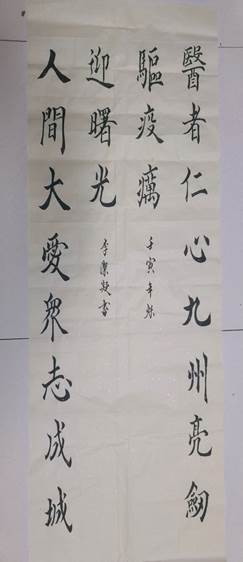 醫者仁心九州亮劒
驅疫癘
壬寅年秋
人間大愛衆志成城
迎曙光
李凝書